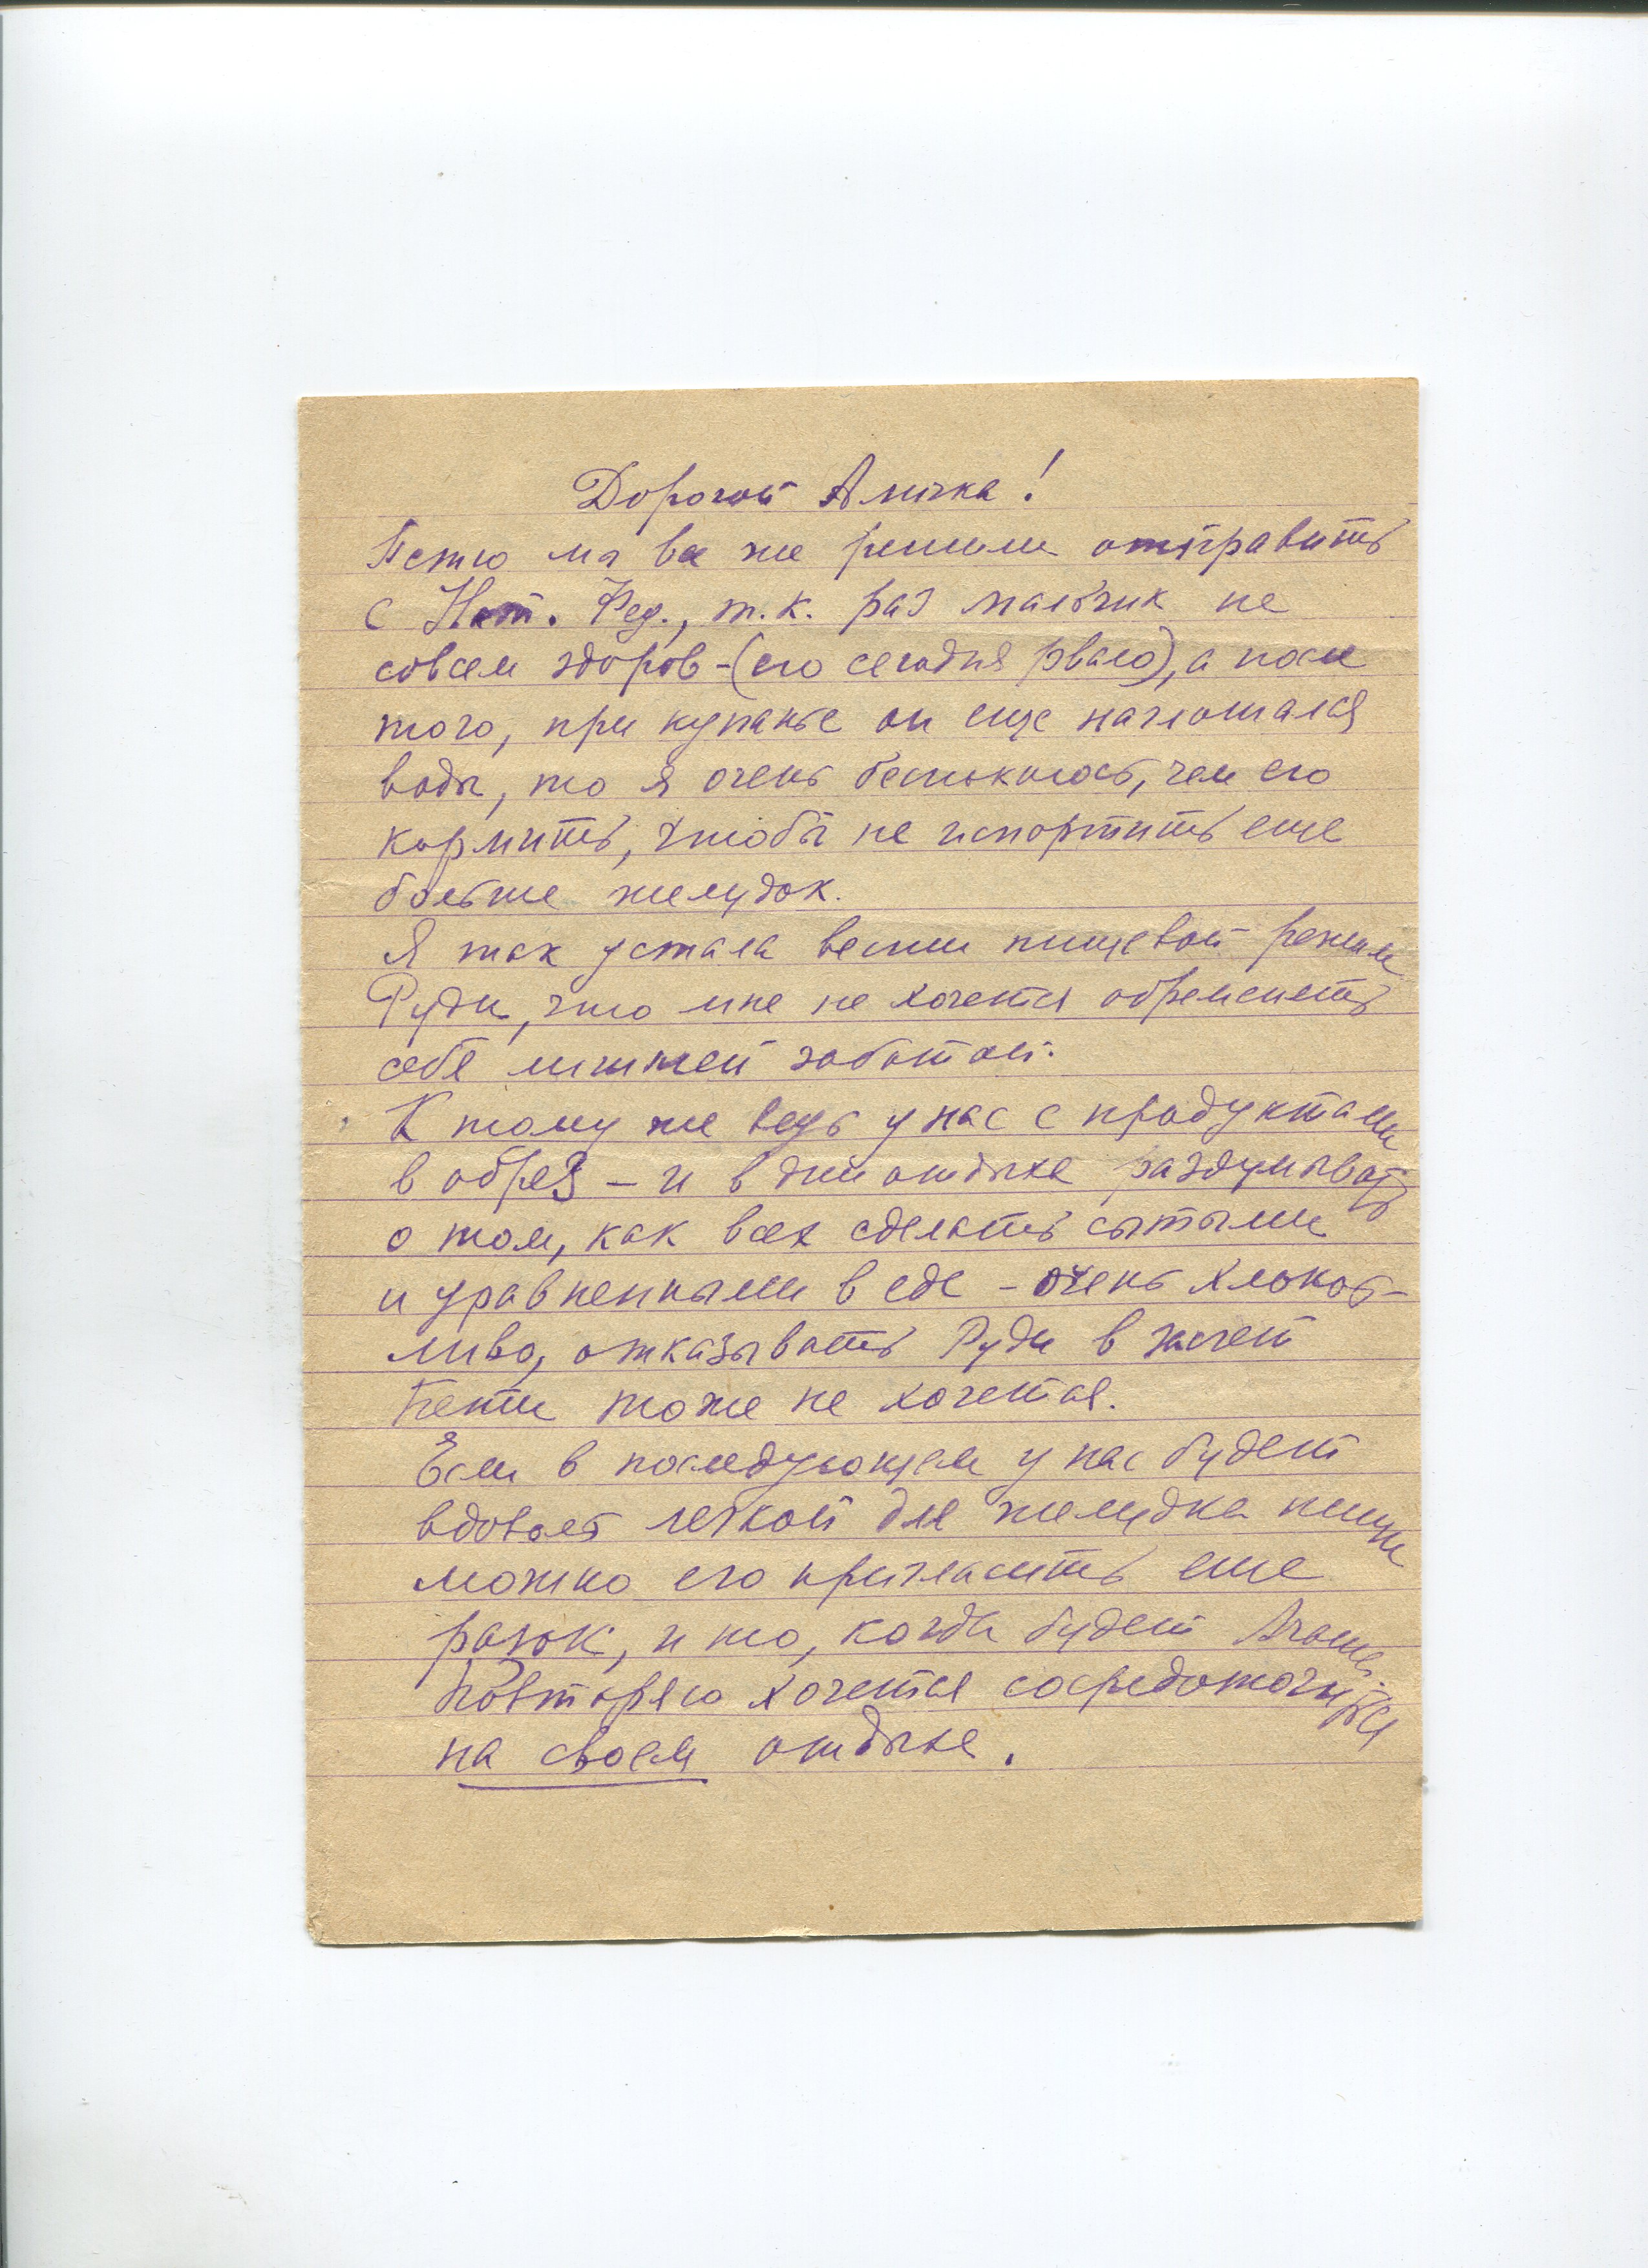 Дорогой Аличка!
Петю мы все же решили отправить
с Нат. Фед., т.к. раз мальчик не
совсем здоров - (его сегодня рвало), а после
того, при купанье он еще наглотался
воды, то я очень беспокоюсь, чем его
кормить, чтобы не испортить еще
больше желудок.
Я так устала вести пищевой режим
Руди, что мне не хочется обременять
себя лишней заботой.
К тому же ведь у нас с продуктами
в обрез - и в дни отдыха раздумывать
о том, как всех сделать сытыми
и уравненными в еде - очень хлопот-
ливо, отказывать Руди в счет
Пети тоже не хочется.
Если в последующем у нас будет
вдоволь легкой для желудка пищи
можно его пригласить еще
разок, и то, когда будет
Повторяю хочется сосредоточиться
на своем отдыхе.